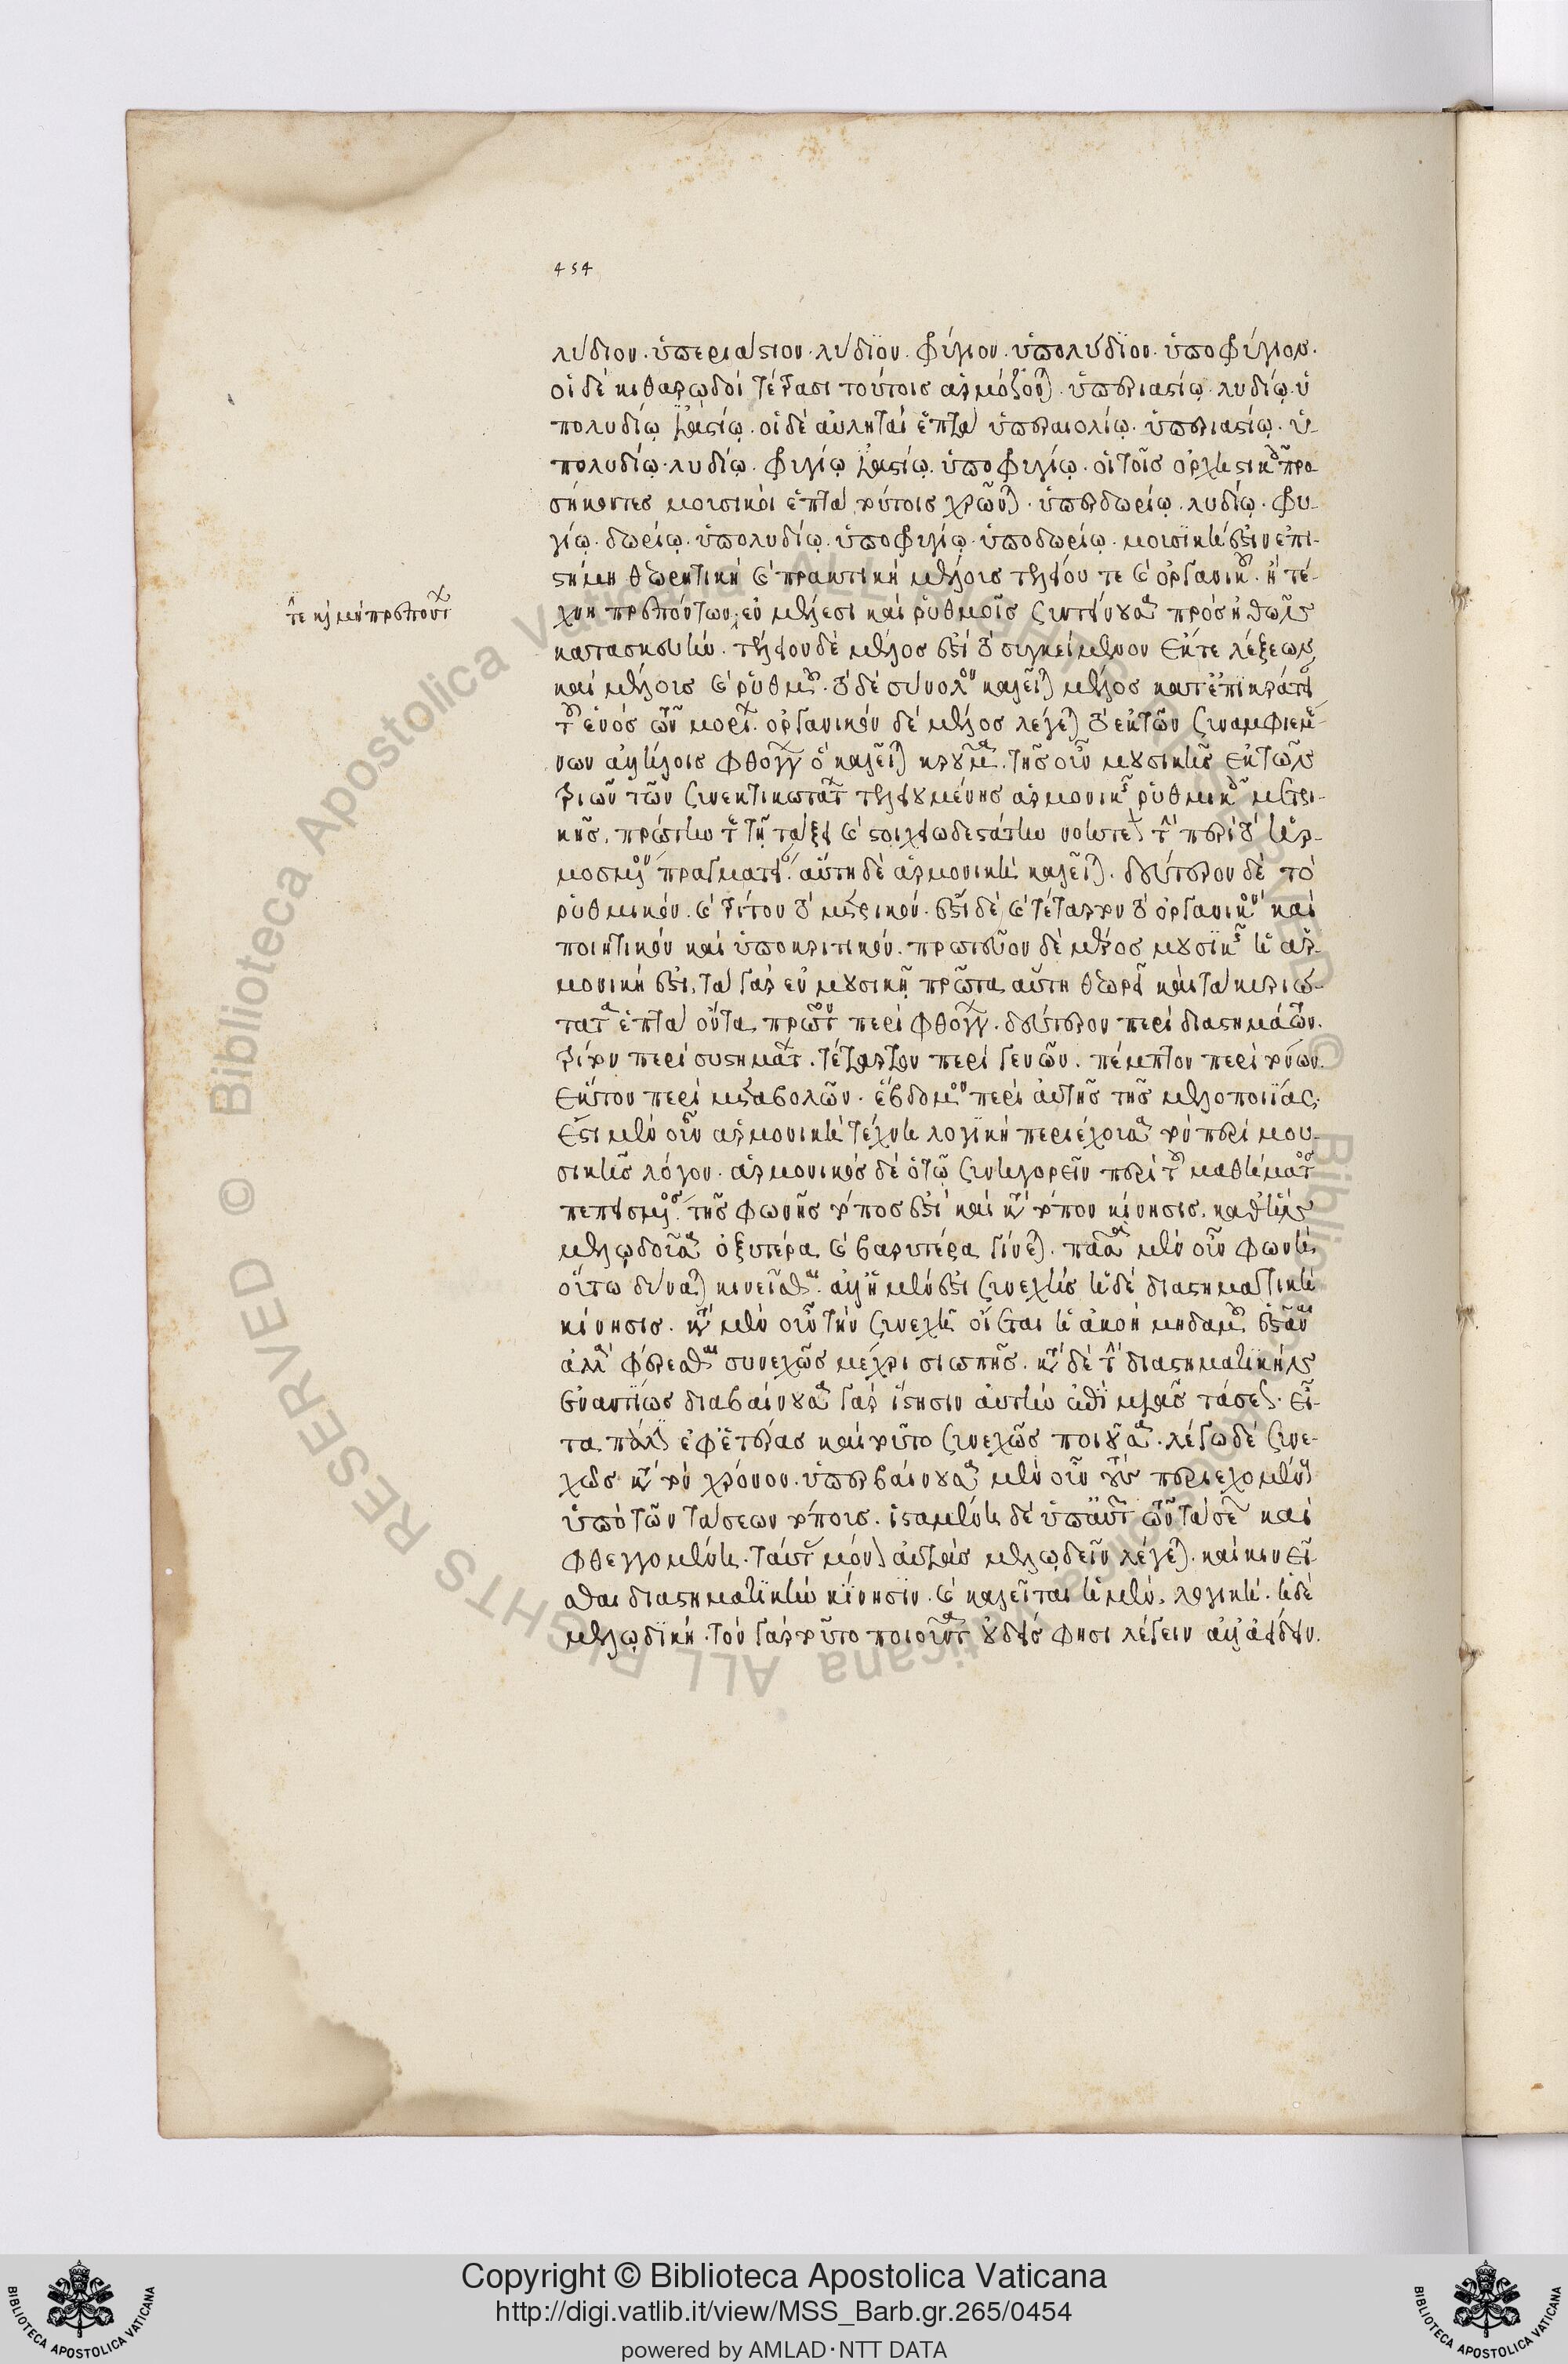 454
λύδιον. ὑπεριάστιον. λύδϊον. φύγιον. ὑπολύδϊον. ὑποφύγιον.
οἱ δὲ κιθαρῳδοὶ τέτρασι τούτοις ἁρμόζονται. ὑπεριαστίῳ. λυδίῳ. ὑ
πολυδίῳ ἰαστίῳ. οἱ δὲ αὐληταὶ ἑπτὰ ὑπεραιολίῳ. ὑπεριαστίῳ. ὑ-
πολυδίῳ. λυδίῳ. φυγίῳ ἰαστίῳ. ὑποφυγίῳ. οἱ τοῖς ὀρχηστικοῦ προ
σήκοντες μουσικοὶ ἑπτὰ τούτοις χρῶνται. ὑπερδωρίῳ. λυδίῳ. φυ-
γίῳ. δωρίῳ. ὑπολυδίῳ. ὑποφυγίῳ. ὑποδωρίῳ. μουσϊκή ἐστιν ἐπι-
στήμη θεωρητικὴ καὶ πρακτικὴ μέλους τελείου τε καὶ ὀργανικοῦ. ἢ τέ-
τε καὶ μὴ πρεπόντων
χνη πρεπόντων, ἐν μέλεσι καὶ ῥυθμοῖς συντείνουσα πρὸς ἠθῶν
κατασκευήν. τέλειον δὲ μέλος ἐστὶ τὸ συγκείμενον ἔκ τε λέξεως
καὶ μέλους καὶ ῥυθμοῦ. τὸ δὲ σύνολον καλεῖται μέλος κατ' ἐπϊκράτει
τοῦ ἑνὸς τῶν μορίων. ὀργανικὸν δὲ μέλος λέγεται τὸ ἐκ τῶν
φθόγγων ὃ καλεῖται κροῦμα. τῆς οὖν μουσικῆς ἐκ τῶν
τριῶν τῶν συνεκτικωτάτων τελουμένης ἁρμονικῆς ῥυθμικοῦ μετρι-
κῆς. πρώτην τε τῇ τάξει καὶ στοιχειωδεστάτην τε περὶ τὸ ἡρ-
μοσμένον πραγματείαν. αὕτη δὲ ἁρμονικὴ καλεῖται. δεύτερον δὲ τὸ
ῥυθμικόν. καὶ τρίτον τὸ μετρικόν. ἔστι δὲ καὶ τέταρτον τὸ ὀργανικὸν καὶ
ποιητικὸν καὶ ὑποκριτικόν. πρωτεῦον δὲ μέρος μουσϊκῆς ἡ ἁρ-
μονική ἐστι. τὰ γὰρ ἐν μουσικῇ πρῶτα αὕτη θεωρεῖ καὶ τὰ κυριώ-
τατα ἑπτὰ ὄντα. πρῶτον περὶ φθόγγων. δεύτερον περὶ διαστημάτων.
τρίτον περὶ συστημάτων. τέταρτον περὶ γενῶν. πέμπτον περὶ τόνων.
ἕκτον περὶ μεταβολῶν. ἕβδομον περὶ αὐτῆς τῆς μελοποιΐας.
ἔστι μὲν οὖν ἁρμονικὴ τέχνη λογϊκὴ περιέχουσα τὸν περὶ μου-
σικῆς λόγον. ἁρμονικὸς δὲ ὁ τῷ συνηγορεῖν περὶ τοῦ μαθήματος
πεπεισμένος. τῆς φωνῆς τόπος ἐστὶ καὶ κατὰ τόπον κίνησις. καθ' ἣν
μελῳδοῦσα ὀξυτέρα καὶ βαρυτέρα γίνεται. πᾶσα μὲν οὖν φωνὴ
οὕτω δύναται κινεῖσθαι. ἀλλ' ἡ μέν ἐστι συνεχὴς ἡ δὲ διαστηματικὴ
κίνησις. κατὰ μὲν οὖν τὴν συνεχῆ οἴεται ἡ ἀκοὴ μηδαμοῦ ἑστάναι
ἀλλὰ φέρεσθαι συνεχῶς μέχρι σιωπῆς. κατὰ δὲ τὴν διαστηματϊκὴν
ἐναντίως διαβαίνουσα γὰρ ἵστησιν αὑτὴν ἐπὶ μιᾶς τάσεως. εἶ-
τα πάλιν ἐφ' ἑτέρας καὶ τοῦτο συνεχῶς ποιοῦσα. λέγω δὲ συνε-
χῶς κατὰ τὸν χρόνον. ὑπερβαίνουσα μὲν οὖν τοὺς περιεχομένους
ὑπὸ τῶν τάσεων τόπους. ἱσταμένη δὲ ὑπ' αὐτῶν τῶν τάσεων καὶ
φθεγγομένη. ταύτας μόνας αὐτὰς μελῳδεῖν λέγεται. καὶ κινεῖ-
σθαι διαστηματϊκὴν κΐνησϊν. καὶ καλεῖται ἡ μὲν. λογικὴ. ἡ δὲ
μελῳδϊκή. τὸν γὰρ τοῦτο ποιοῦντα οὐδείς φησι λέγειν ἀλλ' ᾄδειν.
Copyright © Biblioteca Apostolica Vaticana
http://digi.vatlib.it/view/MSS_Barb.gr.265/0454
powered by AMLAD·NTT DATA